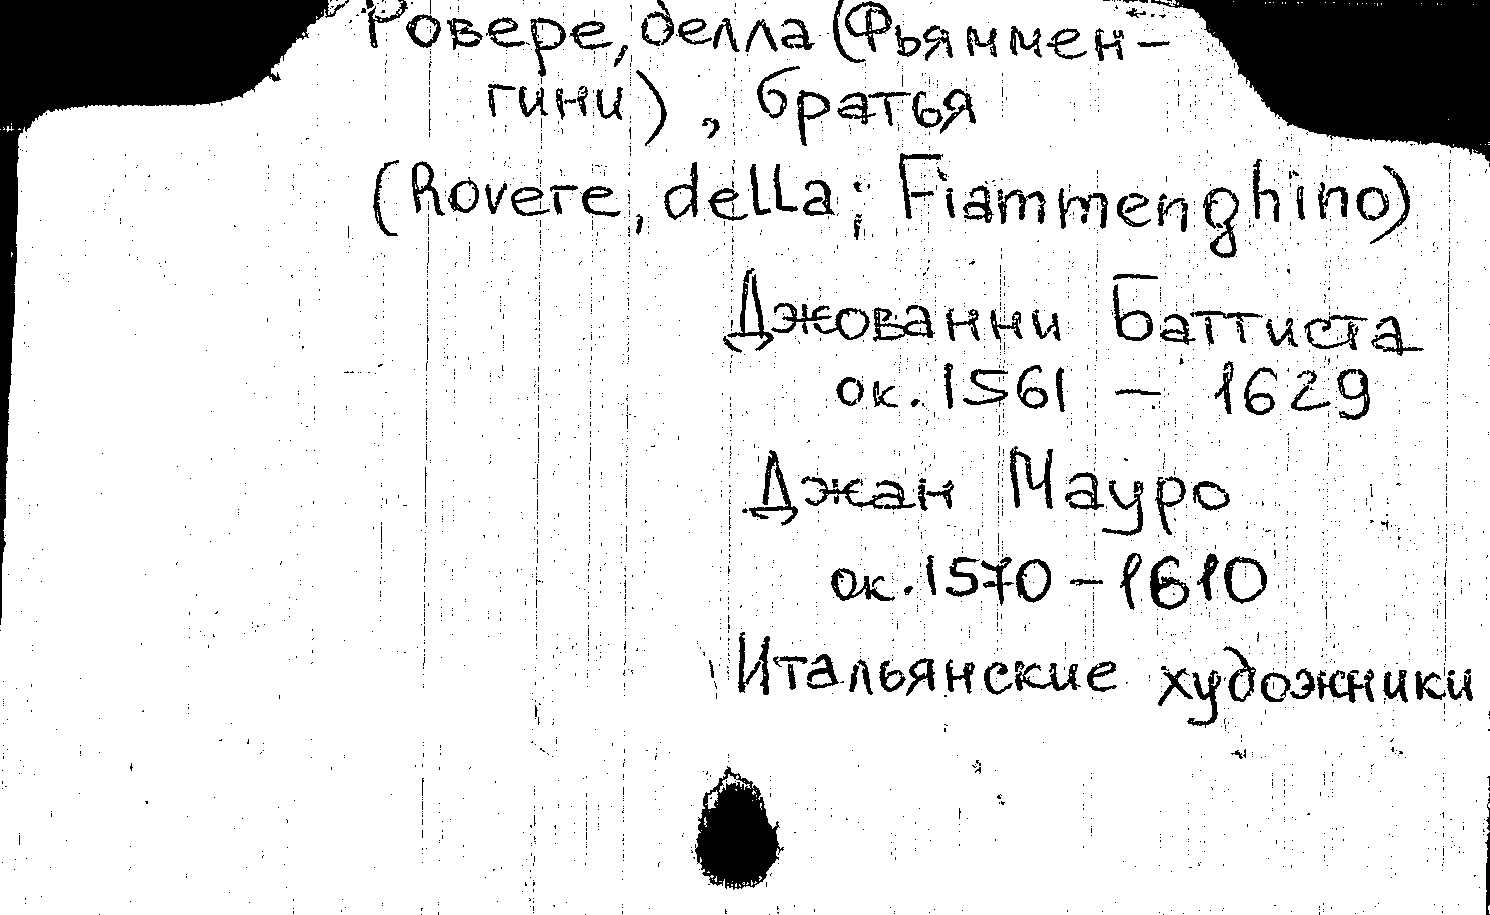 Ровере, делла (Фьяммен-
гини), братья
(Rovere, della; Fiammenghino)
Джованни Баттиста
ок. 1561 – 1629
Джан Мауро
ок. 1570 – 1610
Итальянские художники